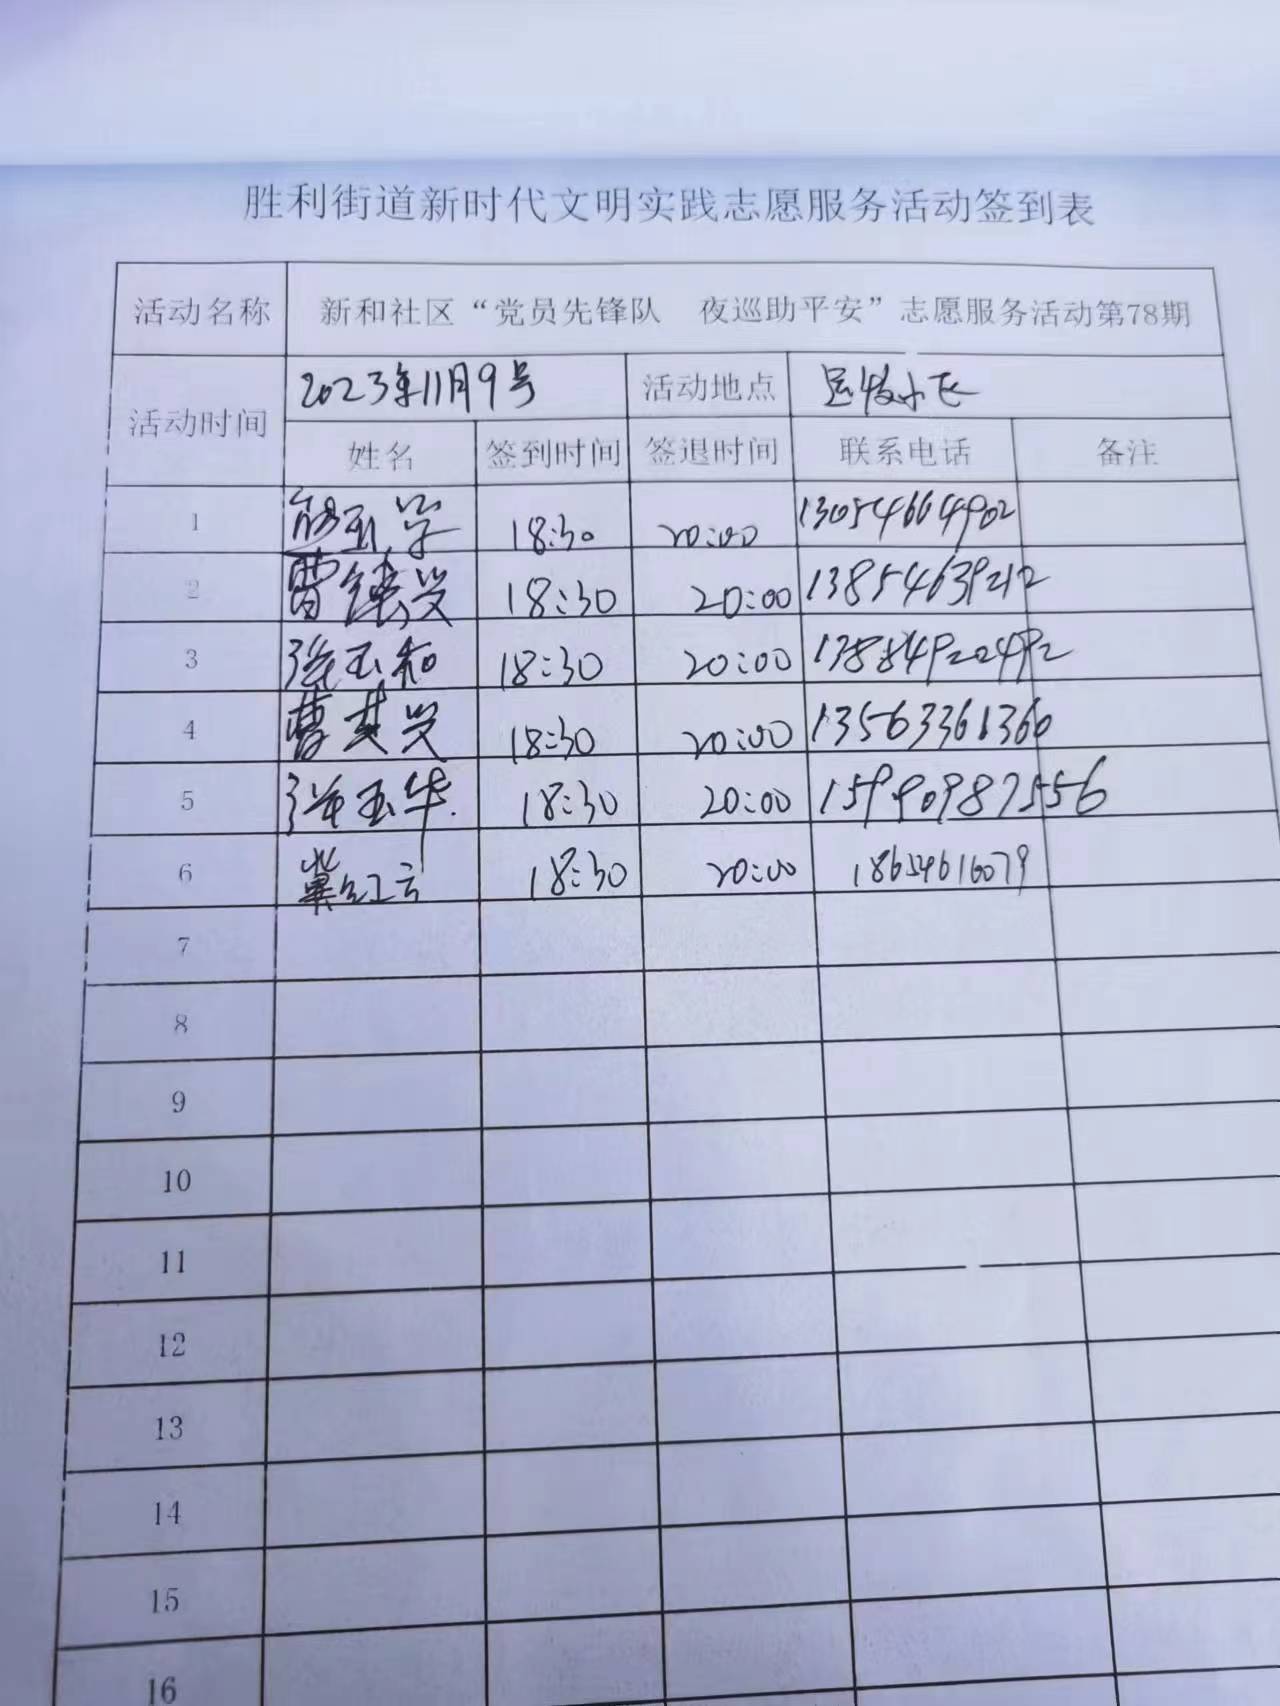 胜利街道新时代文明实践志愿服务活动签到表
活动名称 新和社区“党员先锋队 夜巡助平安”志愿服务活动第78期
活动时间 2023年11月9号 活动地点
姓名 签到时间 签退时间 联系电话 备注
1 18:30 20:00 13054664902
2 曹 兴 18:30 20:00 13854639212
3 张玉和 18:30 20:00
4 曹其兴 18:30 20:00 13563361360
5 张玉华 18:30 20:00
6 冀红云 18:30 20:00 18654616079
7
8
9
10
11
12
13
14
15
16